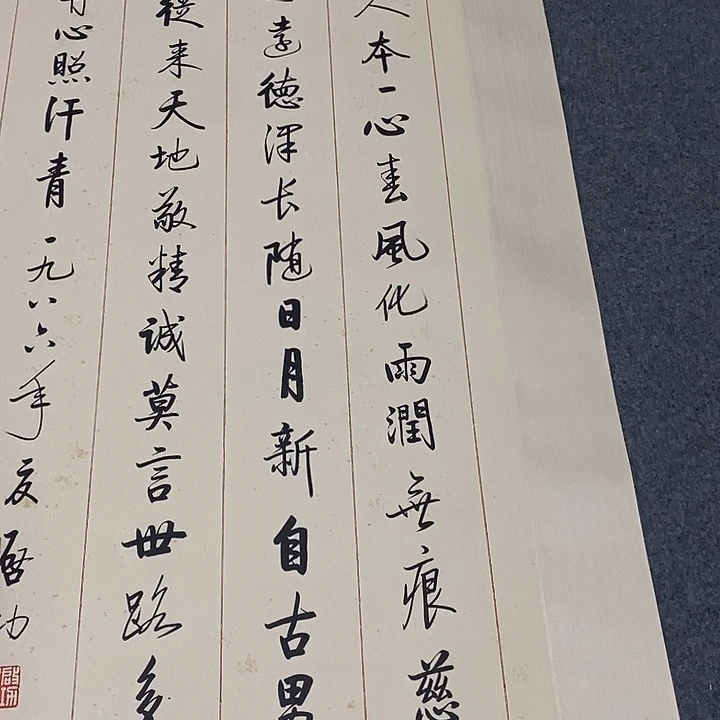 人本一心春風化雨潤無痕慈
遠德澤长随日月新自古男
從来天地敬精誠莫言世路多
有心照汗青
一九八六年夏
啓功
啟功